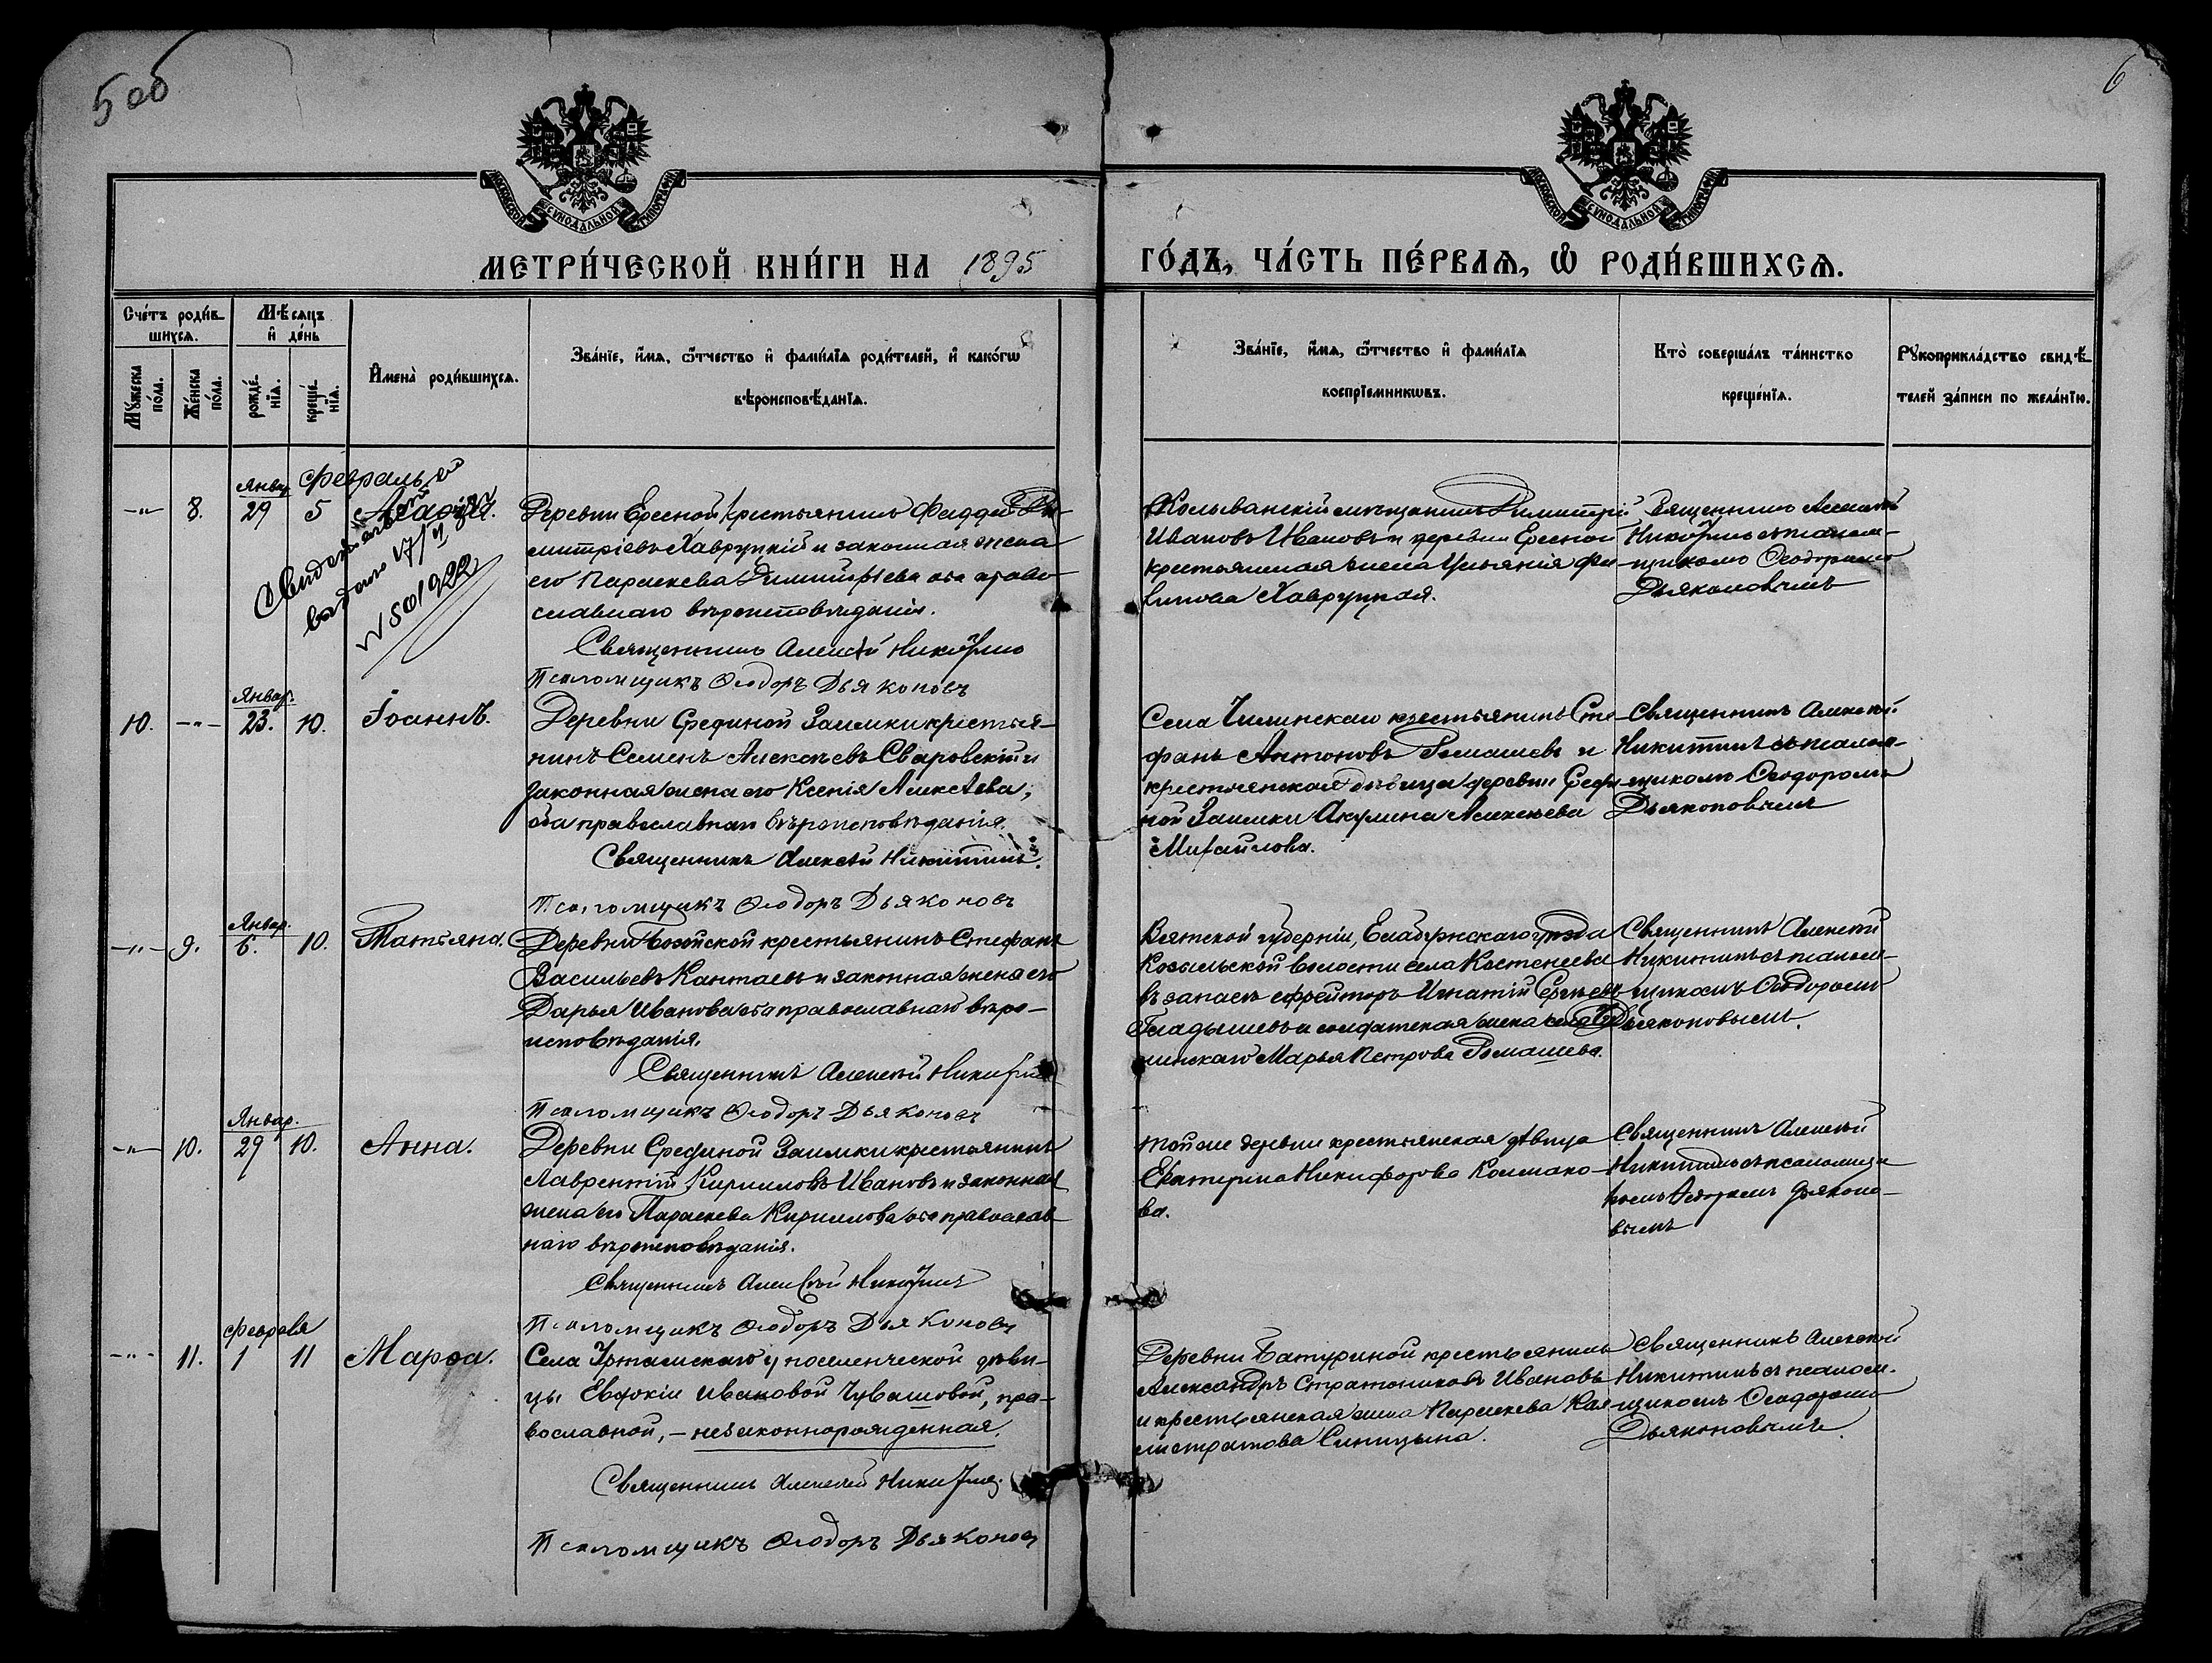 5 об
6
МОСКОВСКОЙ СѴНОДАЛЬНОЙ ТИПОГРАФІИ
МОСКОВСКОЙ СѴНОДАЛЬНОЙ ТИПОГРАФІИ
МЕТРИ́ЧЕСКОЙ КНИ́ГИ НА 1895 ГО́ДЪ, ЧА́СТЬ ПЕ́РВАЯ, Ѽ РОДИ́ВШИХСЯ.
Счетъ роди́вшихся.
Му́жеска по́ла.
Же́нска по́ла.
Мѣ́сяцъ и҆ де́нь
рожде́нїя.
креще́нїя.
И҆мена̀ роди́вшихся.
Зва́нїе, и҆́мя, ѻ҆́тчество и҆ фами́лїя роди́телей, и҆ како́гѡ
вѣроисповѣ́данїя.
Зва́нїе, и҆́мя, ѻ҆́тчество и҆ фами́лїя
воспрїе́мникѡвъ.
Кто̀ соверша́лъ та́инство
креще́нїя.
Рꙋкоприкла́дство свидѣ́-
телей за́писи по жела́нїю.
Январ Февраль
-"- 8. 29 5 Агаѳія.
Свидетельство
выдано 17/
№ 50 1922
Деревни Ересной крестьянинъ Фаддей Ди-
митріевъ Хавруцкій и законная жена
его Параскева Димитріева оба право-
славнаго вѣроисповѣданія.
Священникъ Алексѣй Никитинъ
Псаломщикъ Ѳеодоръ Дьяконовъ
Колыванскій мѣщанинъ Димитрій
Ивановъ Ивановъ и деревни Ересной
крестьянская жена Ульянія Фи-
липова Хавруцкая.
Священникъ Алексѣй
Никитинъ съ псалом-
щикомъ Ѳеодоромъ
Дьяконовымъ
Январ.
10. -"- 23. 10. Іоаннъ.
Деревни Срединой Заимки крестья-
нинъ Семенъ Алексѣевъ Сваровскій и
законная жена его Ксенія Алексѣева,
оба православнаго вѣроисповѣданія.
Священникъ Алексѣй Никитинъ.
Псаломщикъ Ѳеодоръ Дьяконовъ
Села Чилинскаго крестьянинъ Сте-
фанъ Антоновъ Ромашевъ и
крестьянская дѣвица деревни Среди-
ной Заимки Акулина Алексѣева
Михайлова.
Священникъ Алексѣй
Никитинъ съ псалом-
щикомъ Ѳеодоромъ
Дьяконовымъ
Январ.
-"- 9. 6. 10. Татьяна.
Деревни крестьянинъ Стефанъ
Васильевъ Кантаевъ и законная жена его
Дарья Иванова оба православнаго вѣро-
исповѣданія.
Священникъ Алексѣй Никитинъ
Псаломщикъ Ѳеодоръ Дьяконовъ
Вятской губерніи, Елабужскаго уѣзда
Козыльской волости села Костенеева
въ запасѣ ефрейторъ Игнатій Сергѣевъ
Гладышевъ и солдатская жена села Чи-
линскаго Марья Петрова Ромашева.
Священникъ Алексѣй
Никитинъ съ псалом-
щикомъ Ѳеодоромъ
Дьяконовымъ.
Январ.
-"- 10. 29 10. Анна.
Деревни Срединой Заимки крестьянинъ
Лаврентій Кирилловъ Ивановъ и законная
жена его Параскева Кириллова оба православ-
наго вѣроисповѣданія.
Священникъ Алексѣй Никитинъ
Псаломщикъ Ѳеодоръ Дьяконовъ
Той же деревни крестьянская дѣвица
Екатерина Никифорова Колмако-
ва.
Священникъ Алексѣй
Никитинъ съ псаломщи-
комъ Ѳеодоромъ Дьяконо-
вымъ
Февраля
-"- 11. 1 11 Марѳа.
Села Уртамскаго у поселенческой дѣви-
цы Евдокіи Ивановой Чувашовой, пра-
вославной, – незаконнорожденная.
Священникъ Алексѣй Никитинъ.
Псаломщикъ Ѳеодоръ Дьяконовъ
Деревни Батуриной крестьянинъ
Александръ Стратониковъ Ивановъ
и крестьянская жена Параскева Кал-
листратова Синицына.
Священникъ Алексѣй
Никитинъ съ псалом-
щикомъ Ѳеодоромъ
Дьяконовымъ.